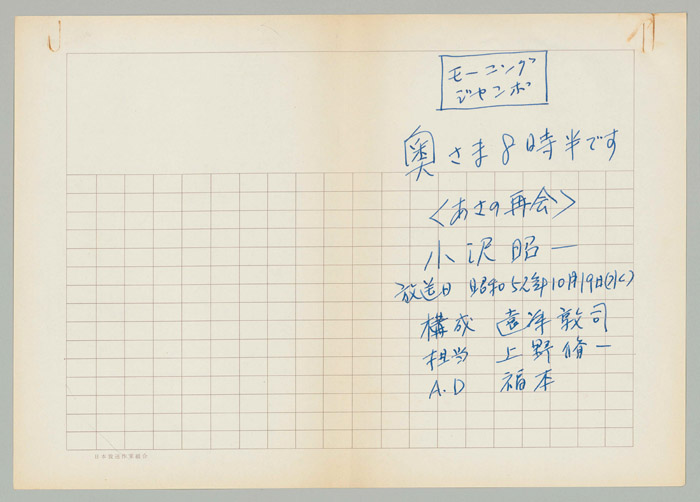 モーニング
ジャンボ
奥さま8時半です
〈あさの再会〉
小沢昭一
放送日 昭和52年10月19日(水)
構成 遠洋敦司
担当 上野脩一
A.D 福本
日本放送作家組合